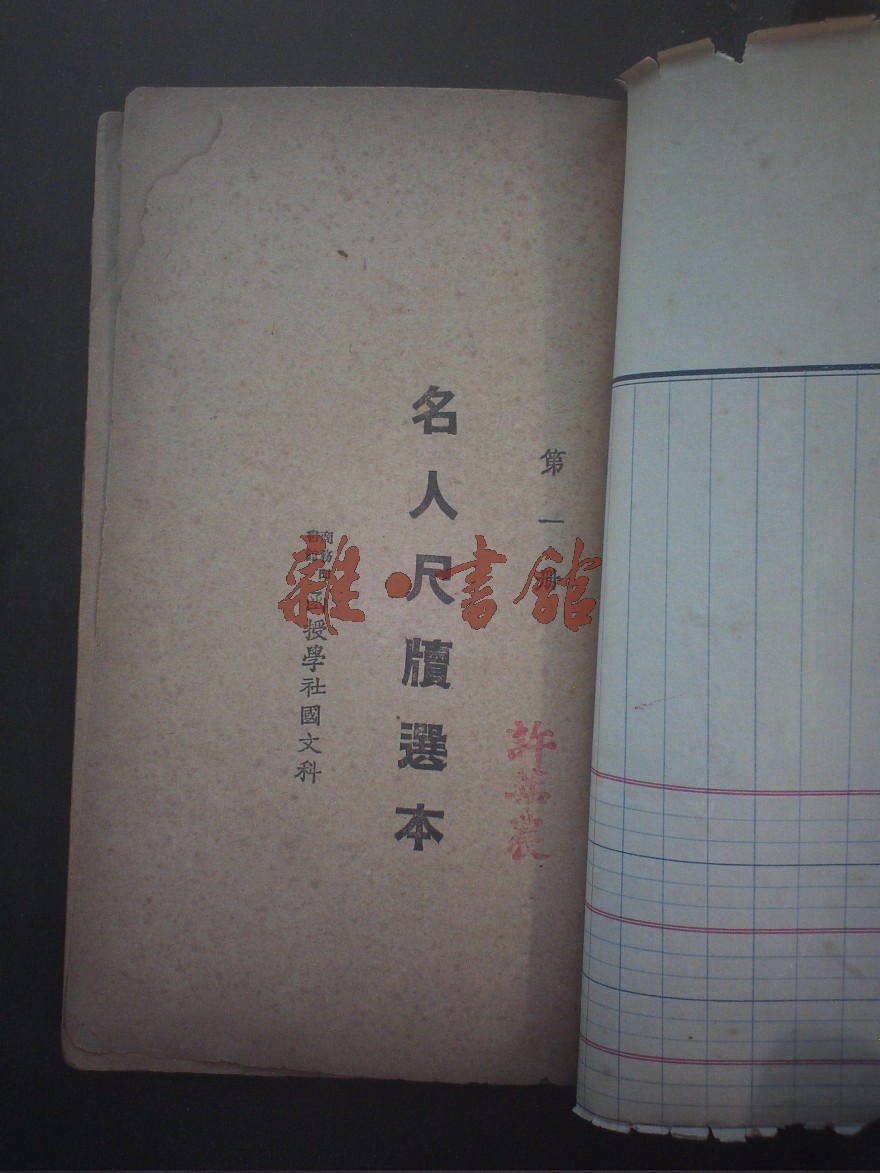 第一册
名人尺牘選本
商務印書館函授學社國文科
許葉農
雜·書館